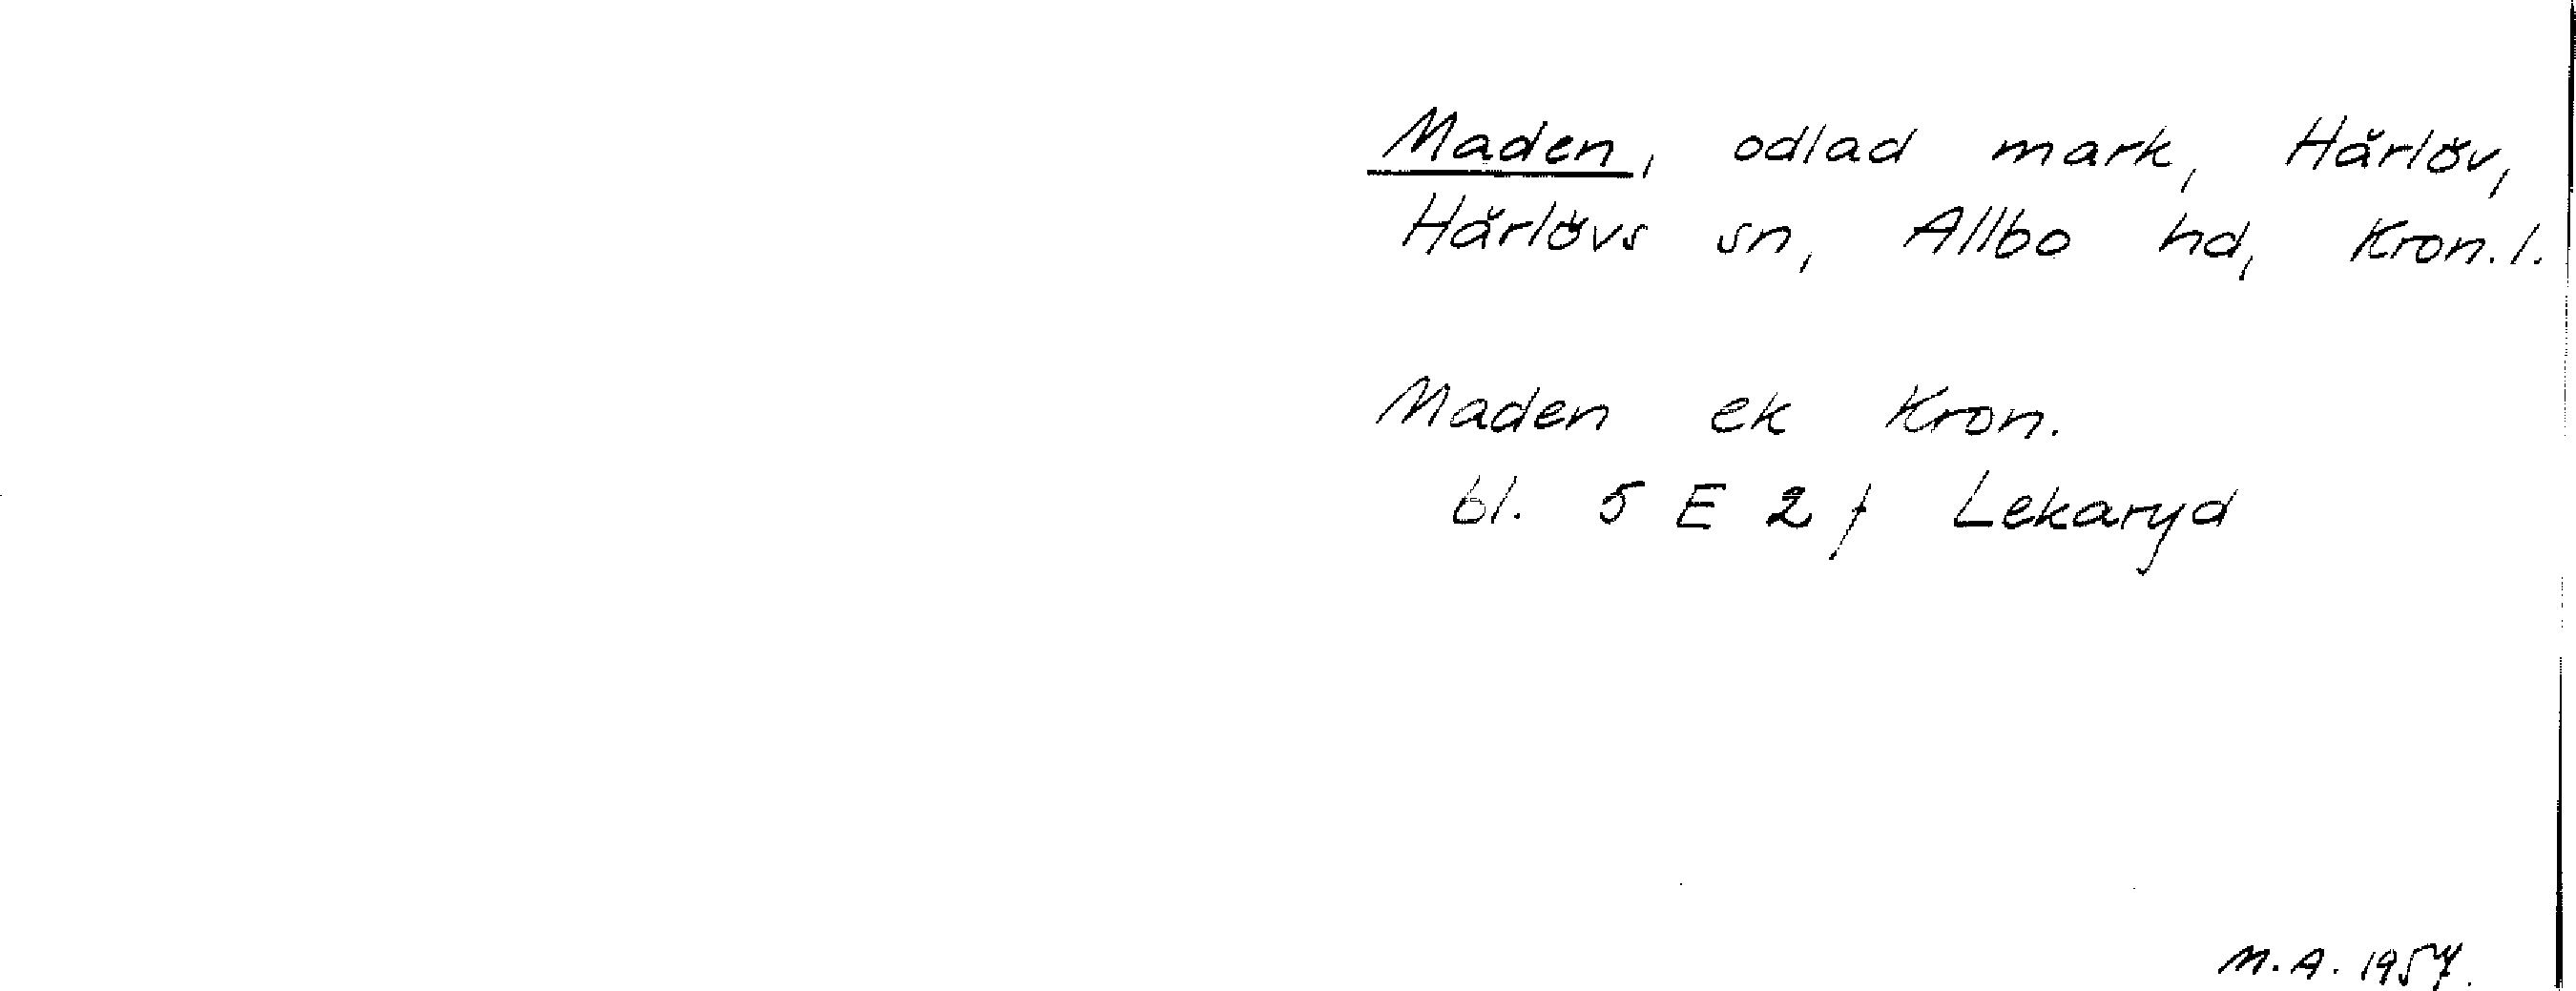 Maden, odlad mark, Härlöv,
Härlövs sn, Allbo hd, Kron. l.
Maden ek Kron.
bl. 5 E 2 f Lekaryd
M.A. 1957.